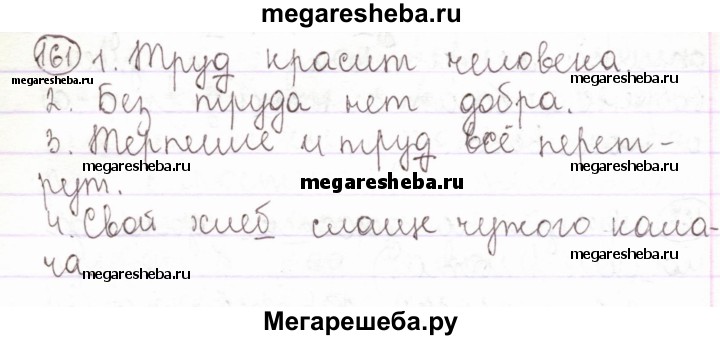 megaresheba.ru
161 1. Труд красит человека.
megaresheba.ru megaresheba.ru
2. Без труда нет добра.
3. Терпение и труд всё перет-
megaresheba.ru megaresheba.ru
рут. megaresheba.ru
4. Свой хлеб слаще чужого кала-
ча megaresheba.ru megaresheba.ru
Мегарешеба.ру